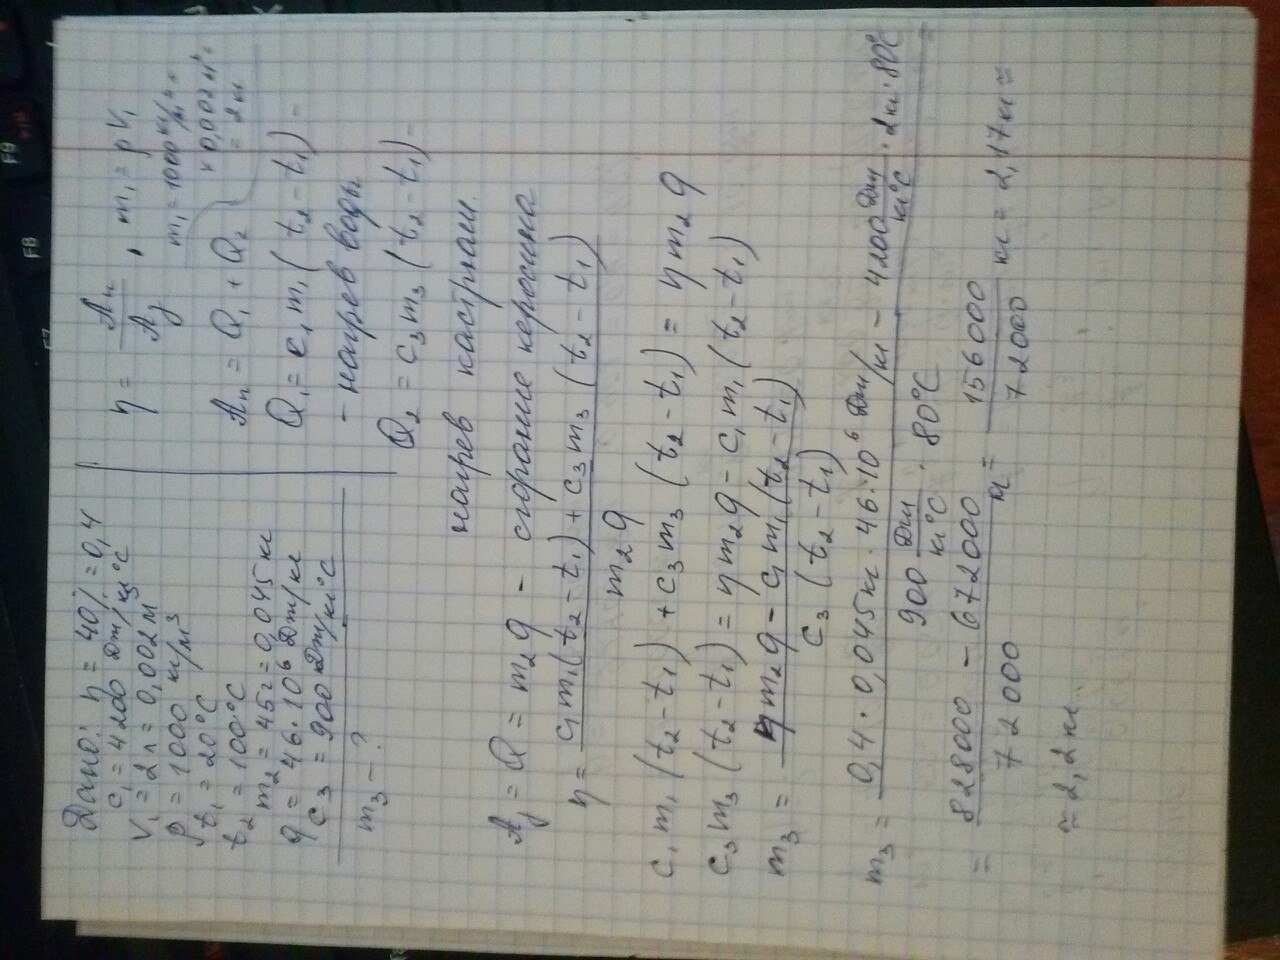 Дано: η = 40% = 0,4
c₁ = 4200 Дж/кг°C
V₁ = 2л = 0,002 м³
ρ = 1000 кг/м³
t₁ = 20°C
t₂ = 100°C
m₂ = 45г = 0,045 кг
q = 46·10⁶ Дж/кг
c₃ = 900 Дж/кг°C
m₃ - ?
η = Aп / Aз , m₁ = ρV₁
m₁ = 1000 кг/м³ ×
× 0,002 м³ =
= 2 кг
Aп = Q₁ + Q₂
Q₁ = c₁m₁(t₂ - t₁) -
- нагрев воды
Q₂ = c₃m₃(t₂ - t₁) -
нагрев кастрюли.
Aз = Q = m₂q - сгорание керосина
η = c₁m₁(t₂ - t₁) + c₃m₃(t₂ - t₁) / m₂q
c₁m₁(t₂ - t₁) + c₃m₃(t₂ - t₁) = ηm₂q
c₃m₃(t₂ - t₁) = ηm₂q - c₁m₁(t₂ - t₁)
m₃ = ηm₂q - c₁m₁(t₂ - t₁) / c₃(t₂ - t₁)
m₃ = 0,4 · 0,045кг · 46·10⁶ Дж/кг - 4200 Дж/кг°C · 2кг · 80°C / 900 Дж/кг°C · 80°C =
= 828000 - 672000 / 72000 кг = 156000 / 72000 кг = 2,17кг ≈
≈ 2,2 кг.
F9
F8
F7